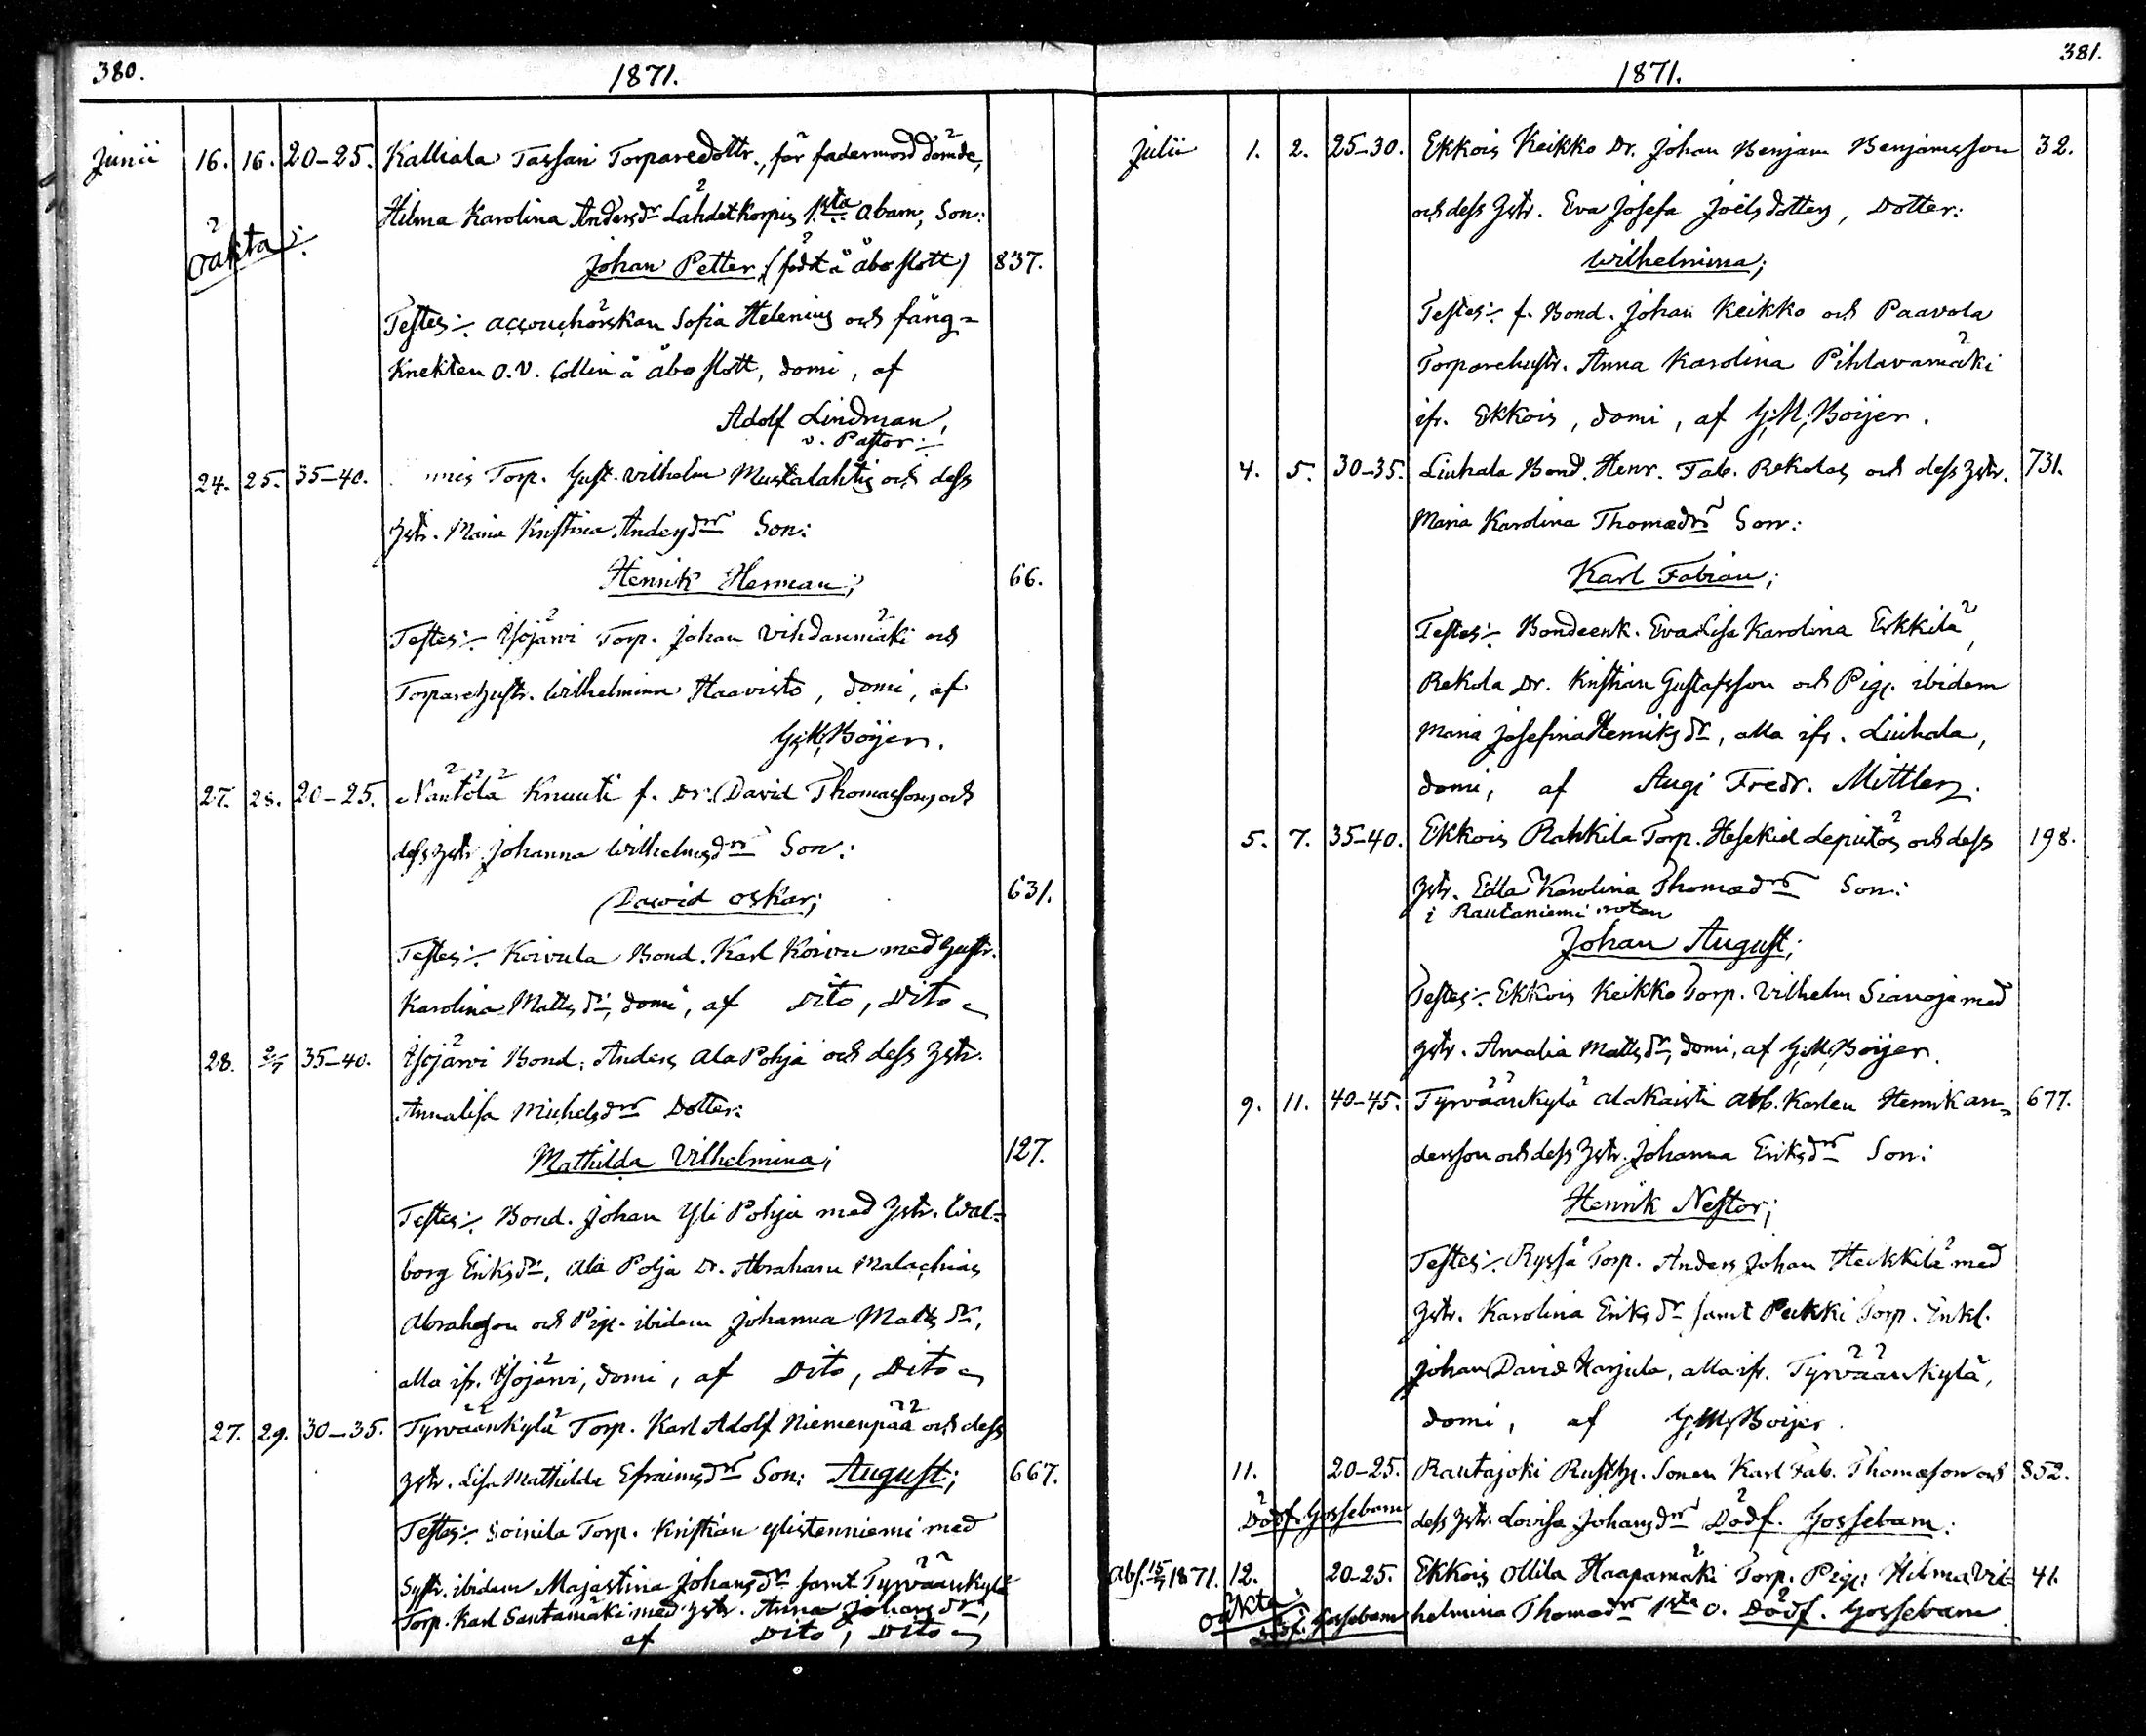 380.
1871.
Junii 16. 16. 20-25. Kalliala Tassari Torparedottr., för fadermord dömde,
oäkta:
Hilma Karolina Andersdr Lähdetkorpis 1sta o.barn, Son:
Johan Petter; (född å åbo slott) 837.
Testes:/. accouchörskan Sofia Helenius och fång=
knekten O.V. Collin å åbo slott, domi, af
Adolf Lindman,
v. Pastor:/
24. 25. 35-40. Torp. Gust. Vilhelm Mustalahtis och dess
hstr. Maria Kristina Andersdr Son:
Henrik Herman; 66.
Testes:/. Ylojärvi Torp. Johan Vihdanmäki och
Torparehustr. Wilhelmina Haavisto, domi, af
G;M;Böijer.
27. 28. 20-25. Näntölä Knuuti f. Dr. David Thomasson, och
dess hstr. Johanna Wilhelmsdr Son:
David Oskar; 631.
Testes:/. Koivula Bond. Karl Koivu med hustr.
Karolina Mattsdr, domi, af Dito, Dito
28. 2/7 35-40. Ylojärvi Bond. Anders Ala Pohja och dess hstr.
Annalisa Michelsdr Dotter:
Mathilda Vilhelmina; 127.
Testes:/. Bond. Johan Yli Pohja med hstr. Wal=
borg Eriksdr, Ala Pohja Dr. Abraham Malachias
Abrahsson och Pig. ibidem Johanna Mattsdr,
alla ifr. Ylojärvi, domi, af Dito, Dito
27. 29. 30-35. Tyrväänkylä Torp. Karl Adolf Niemenpää och dess
hstr. Lisa Mathilda Efraimsdr Son: August; 667.
Testes:/. Soinila Torp. Kristian Ylistenniemi med
Systr. ibidem Majastina Johansdr samt Tyrväänkylä
Torp. Karl Santamäki med hstr. Anna Johansdr,
af Dito, Dito
381.
1871.
Julii 1. 2. 25-30. Ekkois Keikko Dr. Johan Benjam Benjamsson 32.
och dess hstr. Eva Josefa Joëlsdotters, Dotter:
Wilhelmina;
Testes:/. f. Bond. Johan Keikko och Paavola
Torparehustr. Anna Karolina Pihlavamäki
ifr. Ekkois, domi, af G;M;Böijer.
4. 5. 30-35. Liuhala Bond. Henr. Fab. Rekolas och dess hstr. 731.
Maria Karolina Thomædr Son:
Karl Fabian;
Testes:/. Bondeenk. Eva Lisa Karolina Erkkilä,
Rekola Dr. Kristian Gustafsson och Pig. ibidem
Maria Josefina Henriksdr, alla ifr. Liuhala,
domi, af Augi Fredr. Mittler.
5. 7. 35-40. Ekkois Rahkila Torp. Hesekiel Lepistös och dess 198.
hstr. Edla Karolina Thomædr Son:
i Rautaniemi roten
Johan August;
Testes:/. Ekkois Keikko Torp. Vilhelm Sianoja med
hstr. Amalia Mattsdr, domi, af G;M;Böijer.
9. 11. 40-45. Tyrväänkylä Alakaisti Karlen Henrik An= 677.
dersson och dess hstr. Johanna Eriksdr Son:
Henrik Nestor;
Testes:/. Ryssä Torp. Anders Johan Heikkilä med
hstr. Karolina Eriksdr samt Pukki Torp. Enkl.
Johan David Harjula, alla ifr. Tyrväänkylä,
domi, af G;M;Böijer.
11. 20-25. Rautajoki Rusth. Sonen Karl Fab. Thomæson och 852.
Dödf. Gossebarn dess hstr. Lovisa Johansdr Dödf. Gossebarn:
Abs. 15/7 1871. 12. 20-25. Ekkois Ollila Haapamäki Torp. Pig: Hilma Vil= 41.
oäkta Dödf. Gossebarn helmina Thomædr 1sta o. Dödf. Gossebarn